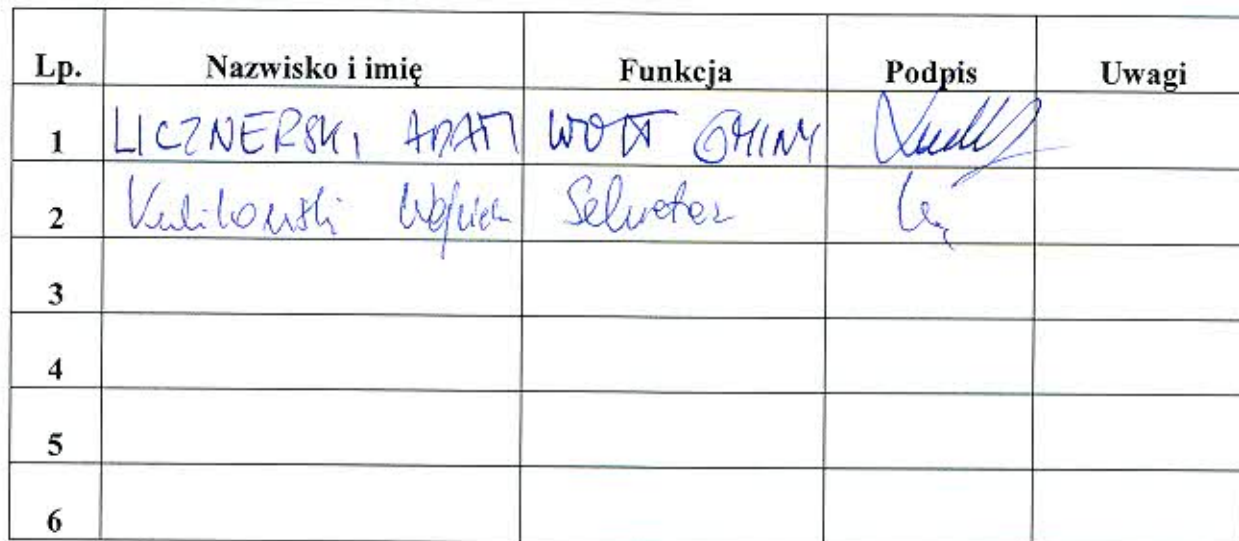 Lp. Nazwisko i imię Funkcja Podpis Uwagi
1 LICZNERSKI ADAM WÓJT GMINY
2 Kulikowski Wojciech Sekretarz
3
4
5
6